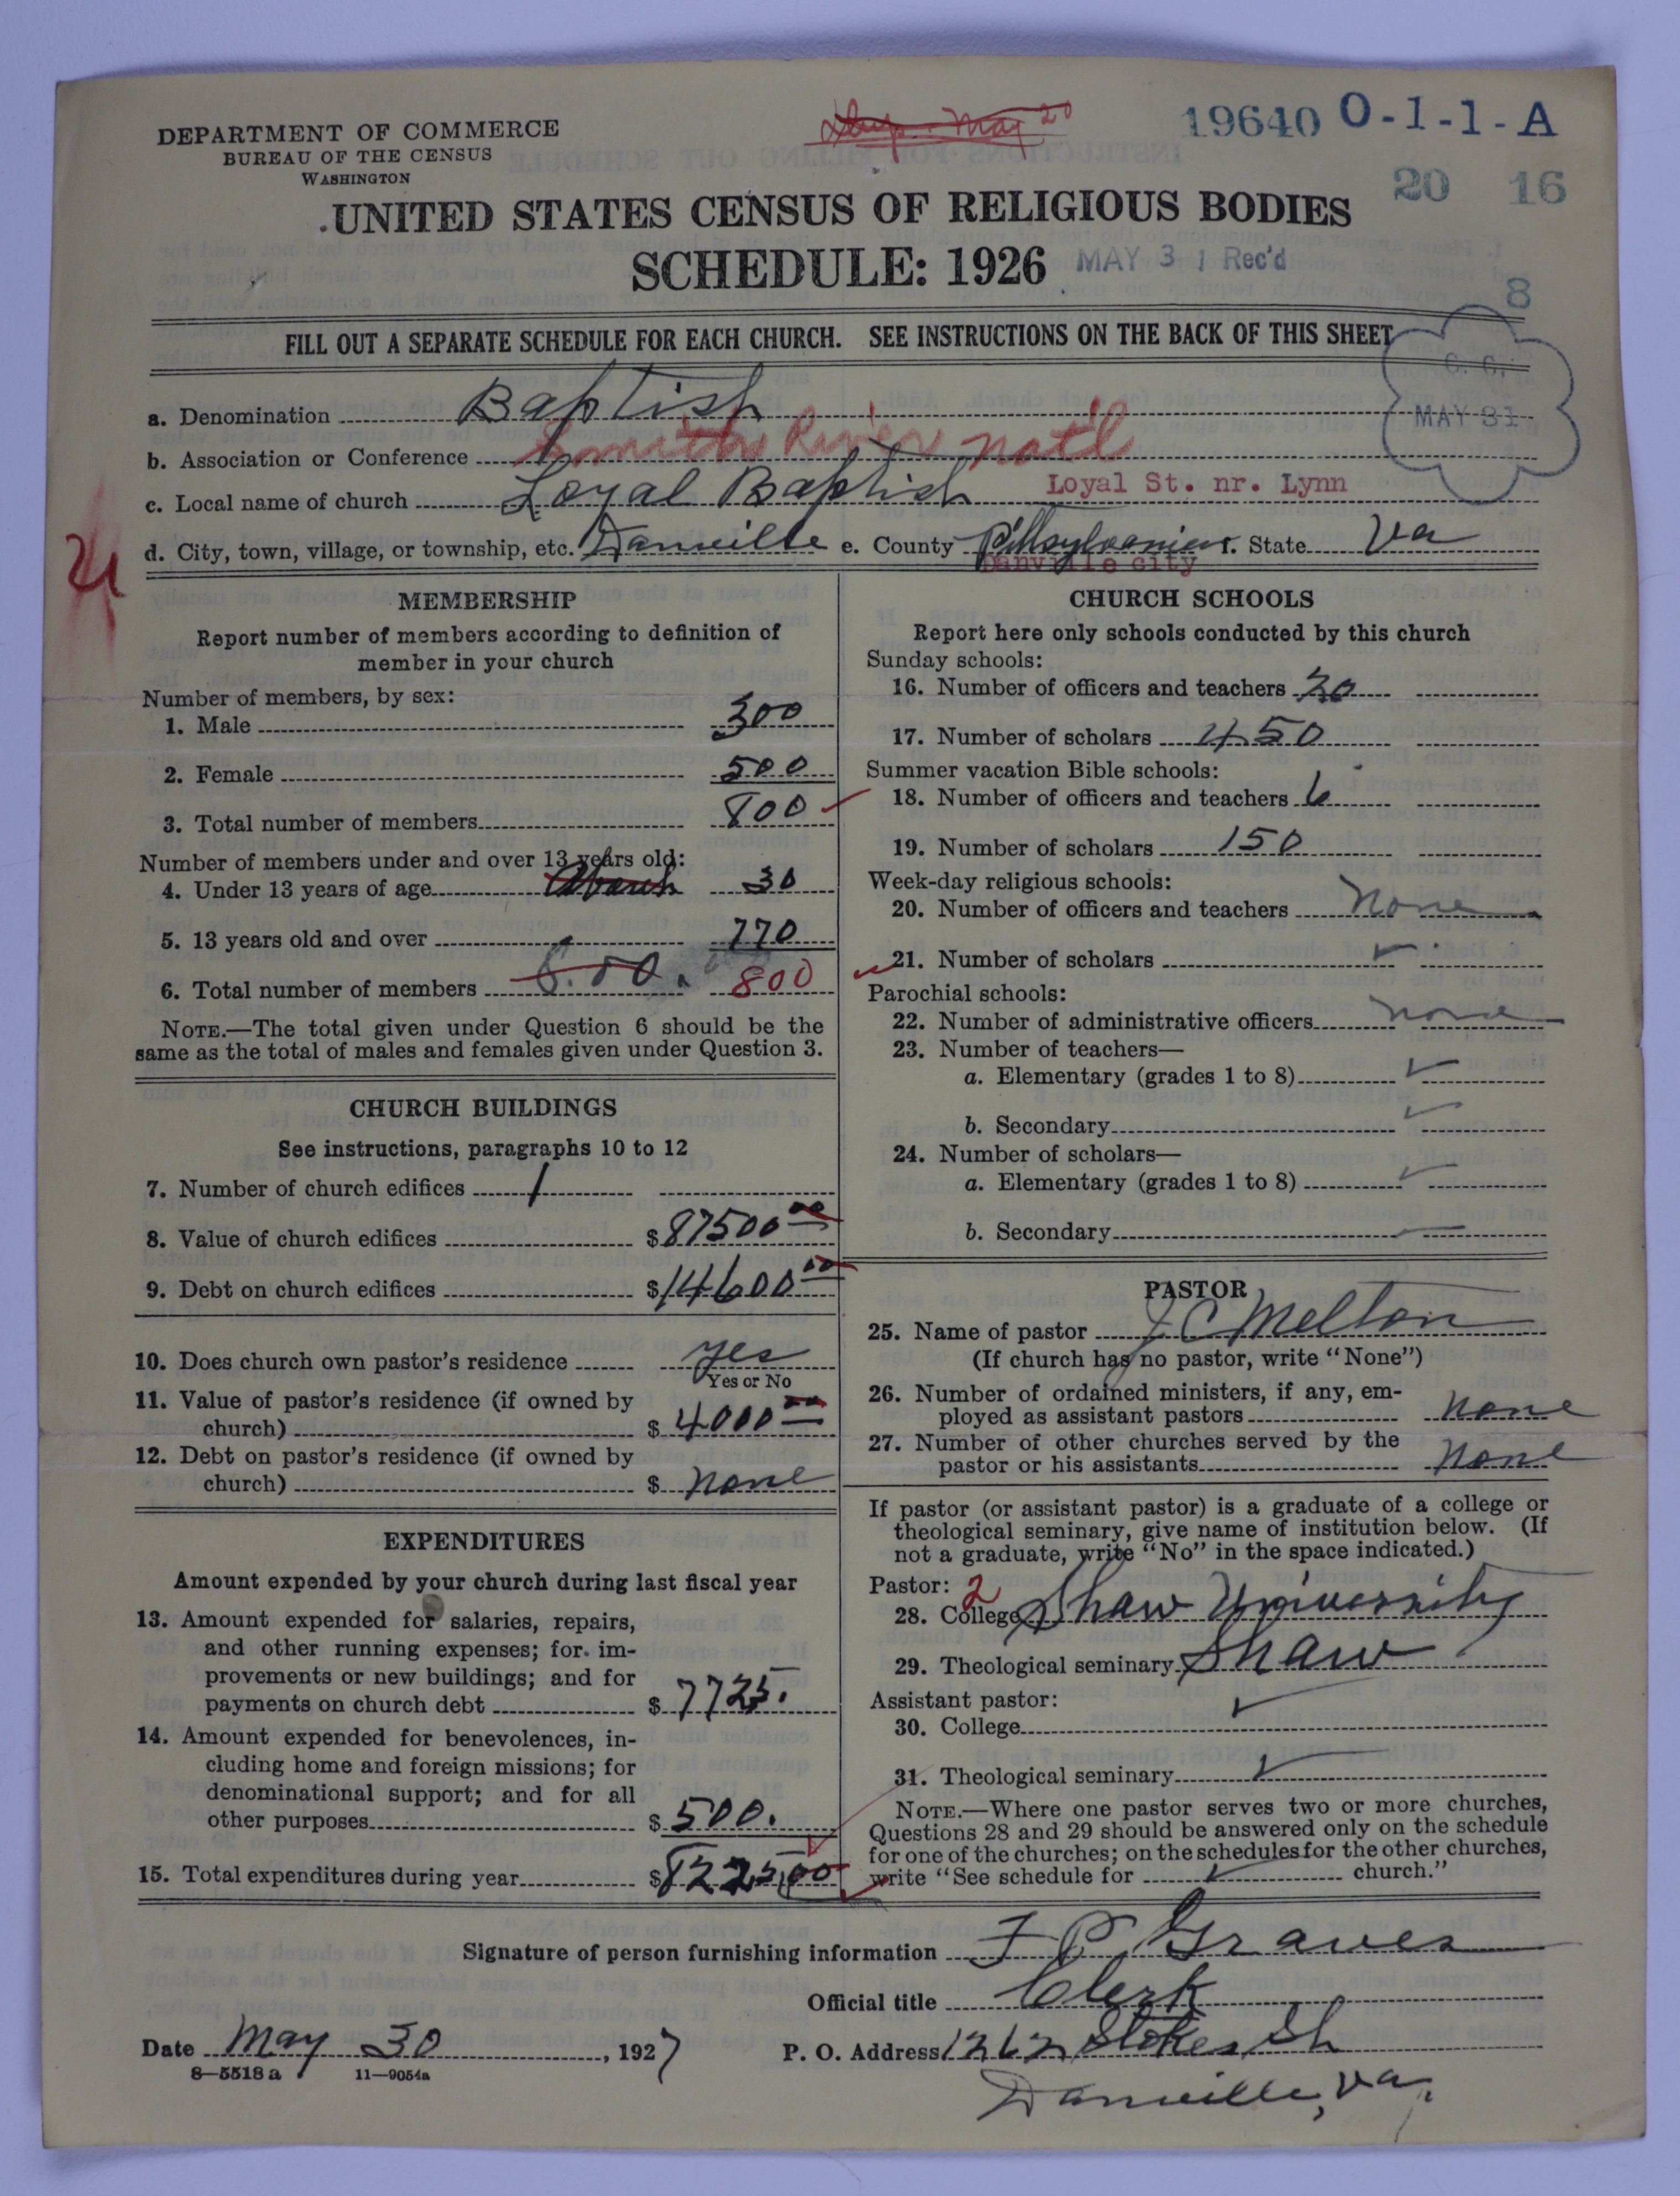 DEPARTMENT OF COMMERCE
BUREAU OF THE CENSUS
WASHINGTON
May 20
19640 O-1-1-A
20 16
UNITED STATES CENSUS OF RELIGIOUS BODIES
SCHEDULE: 1926
MAY 31 Rec'd
8
FILL OUT A SEPARATE SCHEDULE FOR EACH CHURCH. SEE INSTRUCTIONS ON THE BACK OF THIS SHEET
C. C.
MAY 31
a. Denomination Baptish
b. Association or Conference Smith River Nat'l
c. Local name of church Loyal Baptish Loyal St. nr. Lynn
d. City, town, village, or township, etc. Danville e. County Pittsylvania f. State Va
Danville city
MEMBERSHIP
Report number of members according to definition of
member in your church
Number of members, by sex:
1. Male 300
2. Female 500
3. Total number of members 800
Number of members under and over 13 years old:
4. Under 13 years of age 30
5. 13 years old and over 770
6. Total number of members 800
NOTE.—The total given under Question 6 should be the
same as the total of males and females given under Question 3.
CHURCH BUILDINGS
See instructions, paragraphs 10 to 12
7. Number of church edifices 1
8. Value of church edifices $87500 00
9. Debt on church edifices $14600 00
10. Does church own pastor's residence yes
Yes or No
11. Value of pastor's residence (if owned by
church) $4000 00
12. Debt on pastor's residence (if owned by
church) $ none
EXPENDITURES
Amount expended by your church during last fiscal year
13. Amount expended for salaries, repairs,
and other running expenses; for im-
provements or new buildings; and for
payments on church debt $7725.
14. Amount expended for benevolences, in-
cluding home and foreign missions; for
denominational support; and for all
other purposes $500.
15. Total expenditures during year $8225,00
CHURCH SCHOOLS
Report here only schools conducted by this church
Sunday schools:
16. Number of officers and teachers 20
17. Number of scholars 450
Summer vacation Bible schools:
18. Number of officers and teachers 6
19. Number of scholars 150
Week-day religious schools:
20. Number of officers and teachers none
21. Number of scholars
Parochial schools:
22. Number of administrative officers none
23. Number of teachers—
a. Elementary (grades 1 to 8)
b. Secondary
24. Number of scholars—
a. Elementary (grades 1 to 8)
b. Secondary
PASTOR
25. Name of pastor J C Melton
(If church has no pastor, write "None")
26. Number of ordained ministers, if any, em-
ployed as assistant pastors none
27. Number of other churches served by the
pastor or his assistants none
If pastor (or assistant pastor) is a graduate of a college or
theological seminary, give name of institution below. (If
not a graduate, write "No" in the space indicated.)
Pastor: 2
28. College Shaw University
29. Theological seminary Shaw
Assistant pastor:
30. College
31. Theological seminary
NOTE.—Where one pastor serves two or more churches,
Questions 28 and 29 should be answered only on the schedule
for one of the churches; on the schedules for the other churches,
write "See schedule for church."
Signature of person furnishing information F P Graves
Official title Clerk
Date May 30, 1927 P. O. Address 1262 Stokes St
Danville, Va.
8—5518 a 11—9054a